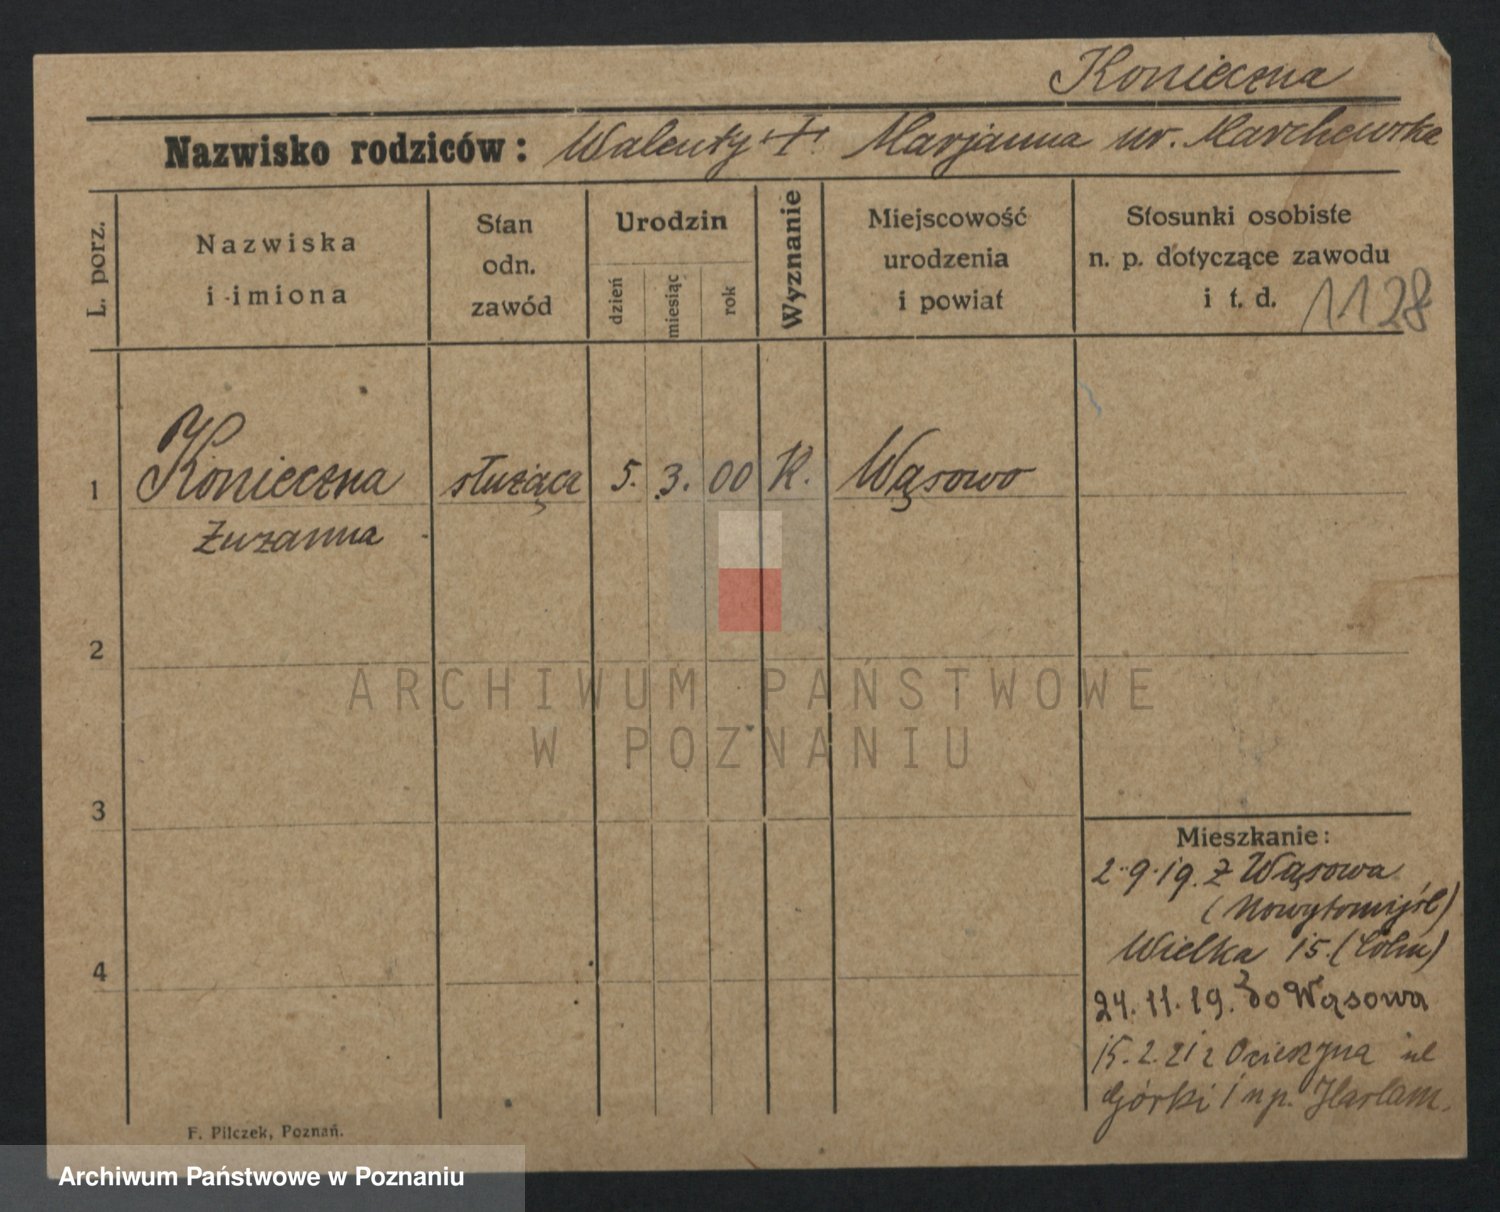 Konieczna
Nazwisko rodziców: Walenty + Marjanna ur. Marchewska
L. porz.
Nazwiska
i imiona
Stan
odn.
zawód
Urodzin
dzień
miesiąc
rok
Wyznanie
Miejscowość
urodzenia
i powiat
Stosunki osobiste
n. p. dotyczące zawodu
i t. d.
1128
1 Konieczna służąca 5. 3. 00 K. Wąsowo
Zuzanna
2
3
4
Mieszkanie:
2.9.19. z Wąsowa
(Nowytomyśl)
Wielka 15. (Cohn)
24.11.19. do Wąsowa
15.2.21 z ul
Górki 1 np. Harlam.
F. Pilczek, Poznań.
ARCHIWUM PAŃSTWOWE
W POZNANIU
Archiwum Państwowe w Poznaniu